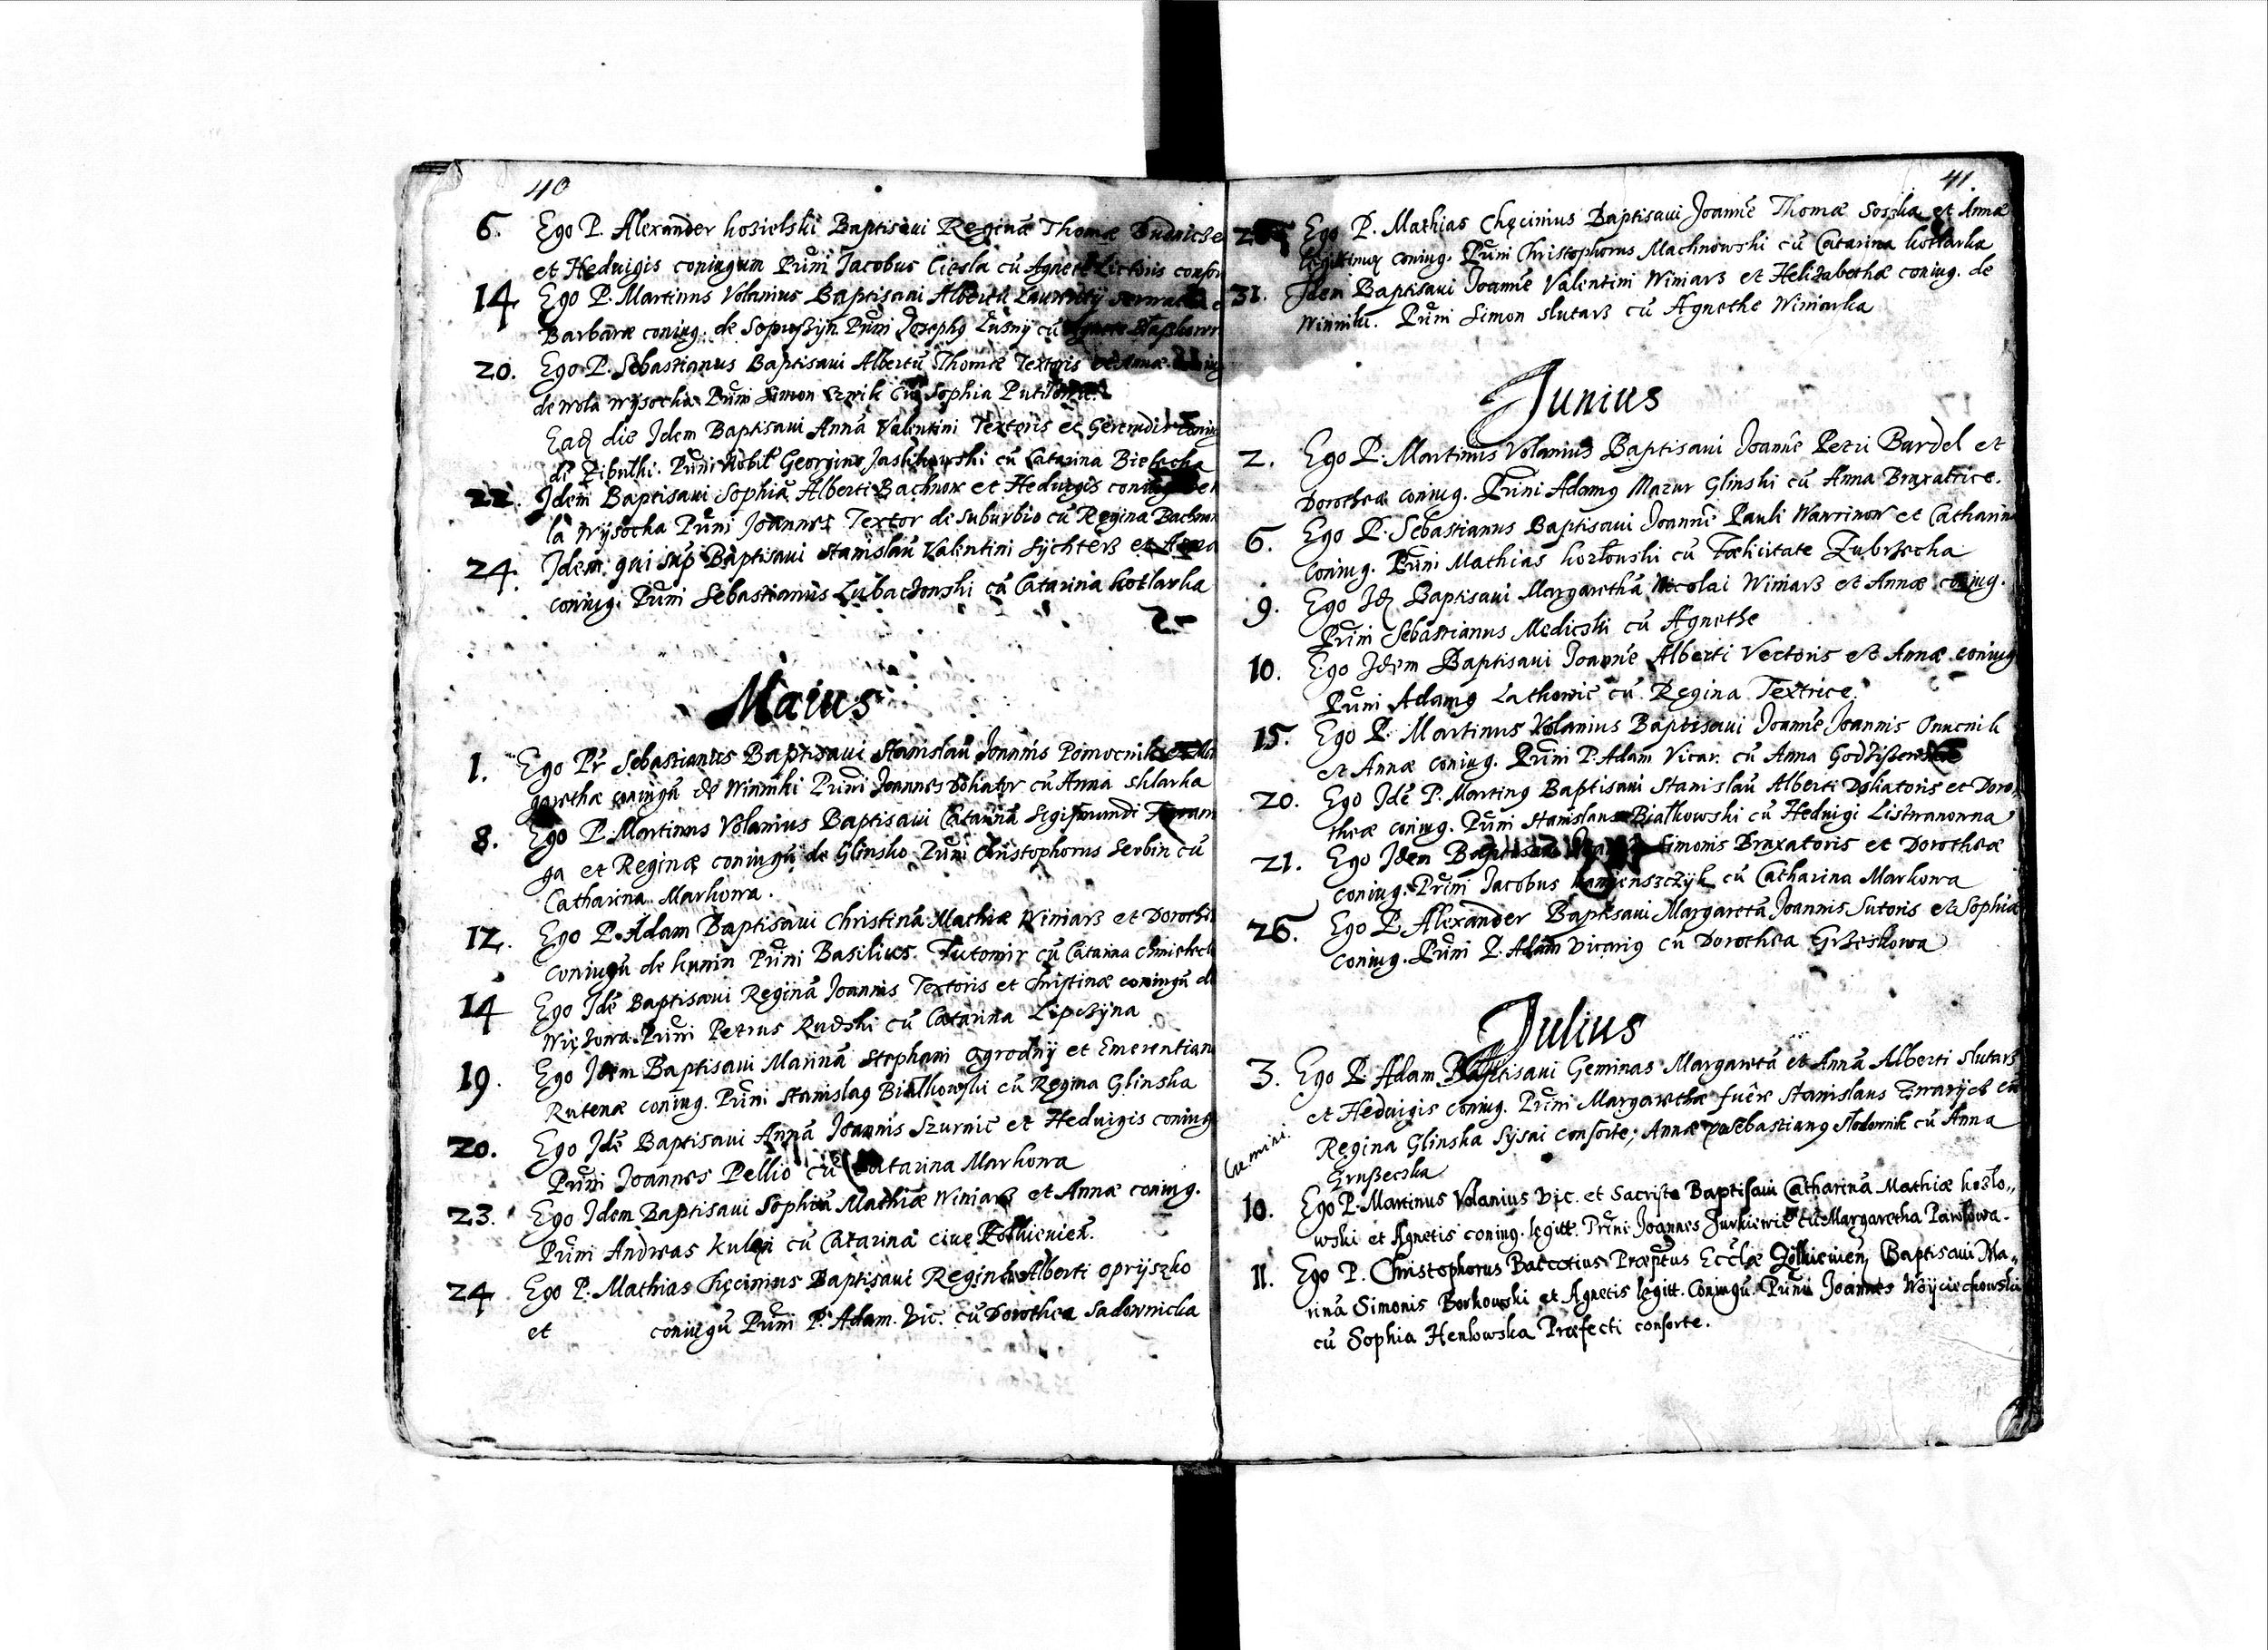 40
6. Ego P. Alexander Kozielski Baptisavi Reginā Thomæ
et Hedvigis coniugum Pr̄ni Jacobus Ciesla cū Agnete Lictoris
14 Ego P. Martinus Volanius Baptisavi Albertū
Barbaræ coniug. de Soposzyn Pr̄ni Josephg Lusny cū
20. Ego P. Sebastianus Baptisavi Albertū Thomæ Textoris et Annæ
de wola wysocka Pr̄ni Simon cū Sophia
Eadē die Idem Baptisavi Annā Valentini Textoris et
de Pr̄ni Nobil Georgius Jaslikowski cū Catarina
22. Idem Baptisavi Sophiā Alberti Bachnow et Hedvigis
la Wysocka Pr̄ni Joannes Textor de suburbio cū Regina
24. Idem qui sup Baptisavi Stanislaū Valentini Sychters et
coniug. Pr̄ni Sebastianus Lubaczonski cū Catarina Kotlarka
Maius
1. Ego Pr Sebastianus Baptisavi Stanislaū Joannis Pomocnik
garethæ coniugū de Winniki Pr̄ni Joannes Doliator cū Anna Sklarka
8. Ego P. Martinus Volanius Baptisavi Catarinā Sigismundi
ga et Reginæ coniugū de Glinsko Pr̄ni Christophorus Serbin cū
Catharina Markowa.
12. Ego P. Adam Baptisavi Christinā Mathiæ Winiarz et
coniugū de Kunin Pr̄ni Basilius cū Catarina
14 Ego Idē Baptisavi Reginā Joannis Textoris et Christinæ coniugū
Pr̄ni Petrus Rudzki cū Catarina Lipczyna
19. Ego Idem Baptisavi Marinā Stephani Ogrodny et
Rutenæ coniug. Pr̄ni Stanislag Bialkowski cū Regina Glinska
20. Ego Idē Baptisavi Annā Joannis Szurnic et Hedvigis coniug
Pr̄ni Joannes Pellio cū Catarina Markowa
23. Ego Idem Baptisavi Sophiā Mathiæ Winiarz et Annæ coniug.
Pr̄ni Andreas Kulęi cū Catarina cive Zolkieviēn.
24 Ego P. Mathias Chęcinius Baptisavi Reginā Alberti Opryszko
et coniugū Pr̄ni P. Adam. Vic. cū Dorothea Sadownicka
41.
Ego P. Mathias Chęcinius Baptisavi Joannē Thomæ Soszka et Annæ
coniug. Pr̄ni Christophorus Machnowski cū Catarina Kotlarka
31. Idem Baptisavi Joannē Valentini Winiarz et Helizabethæ coniug. de
Winniki. Pr̄ni Simon Slutarz cū Agnethe Winiarka
Junius
2. Ego P. Martinus Volanius Baptisavi Joannē Petri Bardel et
Dorotheæ coniug. Pr̄ni Adamg Mazur Glinski cū Anna Braxatrice.
6. Ego P. Sebastianus Baptisavi Joannē Pauli Wawrinow et
coniug. Pr̄ni Mathias Kozlowski cū Fælicitate Zubrzecka
9. Ego Idē Baptisavi Margarethā Nicolai Winiarz et Annæ coniug.
Pr̄ni Sebastianus Medicski cū Agnethe
10. Ego Idem Baptisavi Joannē Alberti Vectoris et Annæ coniug
Pr̄ni Adamg Lathowic cū Regina Textrice.
15. Ego P. Martinus Volanius Baptisavi Joannē Joannis
et Annæ coniug. Pr̄ni P. Adam Vicar. cū Anna
20. Ego Idē P. Marting Baptisavi Stanislaū Alberti Doliatoris et Doro„
theæ coniug. Pr̄ni Stanislaus Bialkowski cū Hedvigi Listwanowna
21. Ego Idem Simonis Braxatoris et Dorotheæ
coniug. Pr̄ni Jacobus Kamienszczyk cū Catharina Markowa
26. Ego P. Alexander Baptisavi Margaretā Joannis Sutoris et Sophiæ
coniug. Pr̄ni P. Adam Vicarig cū Dorothea Grzeskowa
Julius
3. Ego P. Adam Baptisavi Geminas Margaretā et Annā Alberti Slutarz
et Hedvigis coniug. Pr̄ni Margarethæ fuêre Stanislaus cū
Gemini. Regina Glinska Sysai consorte; Annæ Sebastiang Slodownik cū Anna
10. Ego P. Martinus Volanius Vic. et Sacrista Baptisavi Catharinā Mathiæ Kozlo„
wski et Agnetis coniug. legitt. Pr̄ni Joannes Jurkiewic cū Margaretha
11. Ego P. Christophorus Præptus Eccłæ Zolkieviēn, Baptisavi Ma„
rinā Simonis Borkowski et Agnetis legitt. Coniugū. Pr̄ni Joannes Woyciechowski
cū Sophia Henlowska Præfecti consorte.